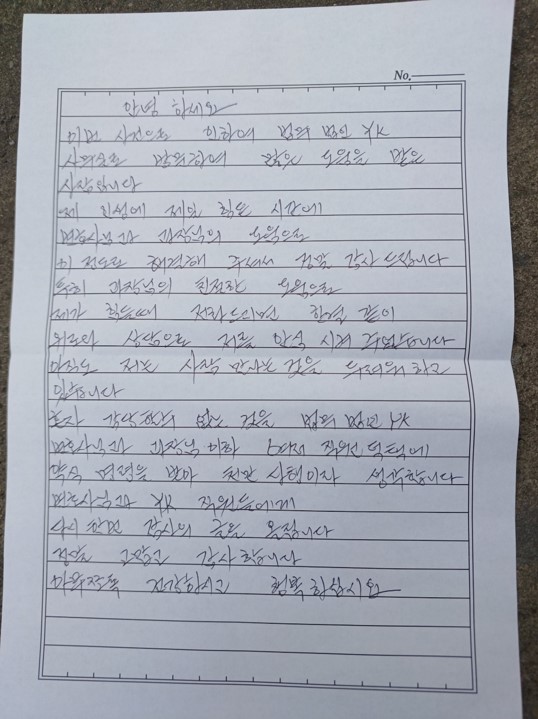 No.
안녕 하세요
이번 사건으로 인하여 법무 법인 YK
사무실로 방문하여 많은 도움을 받은
사람입니다
제 인생에 제일 힘든 시간에
변호사님과 과장님의 도움으로
이 정도로 해결해 주셔서 정말 감사 드립니다
특히 과장님의 친절한 도움으로
제가 힘들때 전화드리면 한결 같이
위로와 상담으로 저를 안심 시켜 주었습니다
아직도 저는 사람 만나는 것을 두려워 하고
있습니다
혼자 감당할수 없는 것을 법무 법인 YK
변호사님과 과장님 이하 직원 덕택에
약식 명령을 받아 천만 다행이라 생각합니다
변호사님과 YK 직원들에게
다시 한번 감사의 글을 올립니다
정말 고맙고 감사 합니다
아무쪼록 건강하시고 행복 하십시요